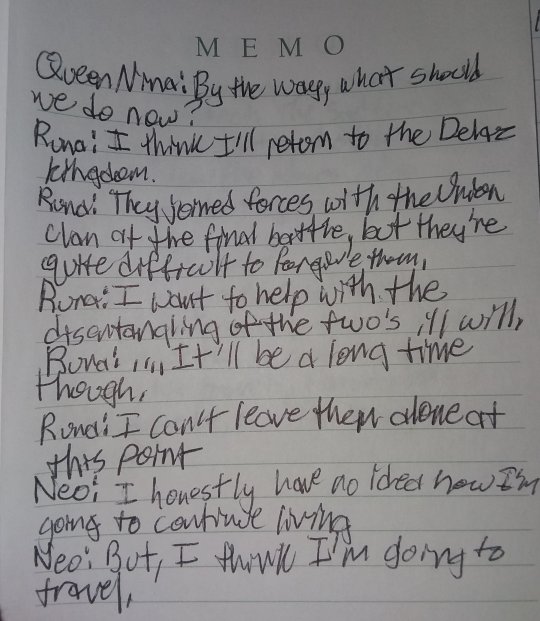 MEMO
Queen Nina: By the way, what should
we do now?
Runa: I think I'll return to the Delaz
kingdom.
Runa: They joined forces with the Union
clan at the final battle, but they're
quite difficult to forgive them,
Runa: I want to help with the
disentangling of the two's ill will,
Runa: ,,,, It'll be a long time
though,
Runa: I can't leave them alone at
this point
Neo: I honestly have no idea how I'm
going to continue living
Neo: But, I think I'm going to
travel,